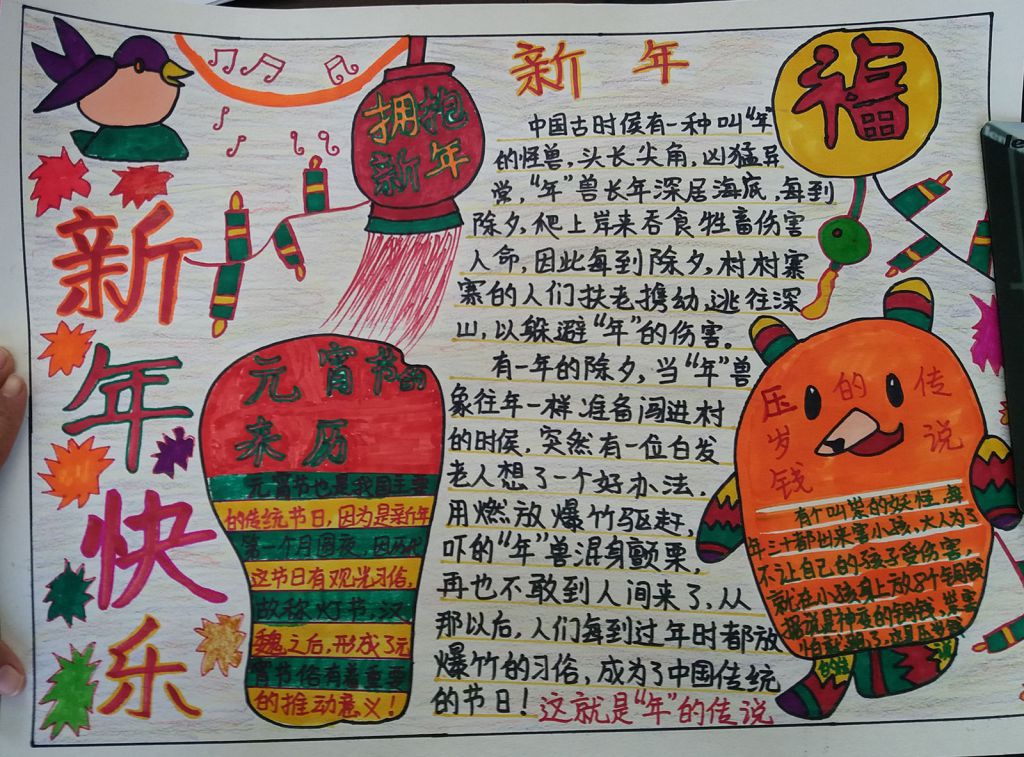 新年快乐
拥抱
新年
新年
中国古时侯有一种叫“年”
的怪兽,头长尖角,凶猛异
常,“年”兽长年深居海底,每到
除夕,爬上岸来吞食牲畜伤害
人命,因此每到除夕,村村寨
寨的人们扶老携幼逃往深
山,以躲避“年”的伤害。
有一年的除夕,当“年”兽
象往年一样准备闯进村
的时侯,突然有一位白发
老人想了一个好办法,
用燃放爆竹驱赶,
吓的“年”兽混身颤栗,
再也不敢到人间来了,从
那以后,人们每到过年时都放
爆竹的习俗,成为了中国传统
的节日!这就是“年”的传说
福
元宵节的
来历
元宵节也是我国主要
的传统节日,因为是新年
第一个月圆夜,因历代
这节日有观光习俗,
故称灯节,汉
魏之后,形成了元
宵节俗有着重要
的推动意义!
压岁钱的传说
有个叫祟的妖怪,每
年三十都出来害小孩,大人为了
不让自己的孩子受伤害,
就在小孩身上放8个铜钱
据说是神夜的铜钱,祟害
怕就跑了,这是